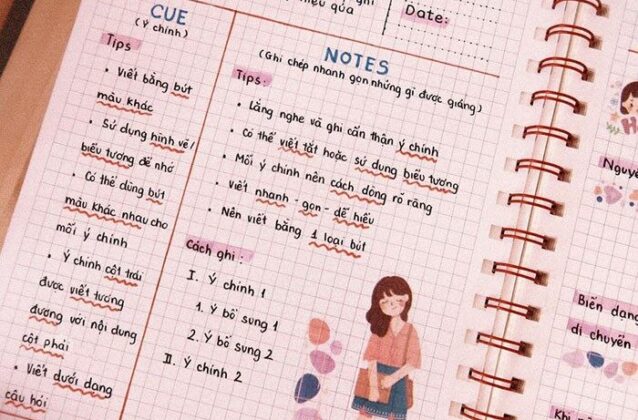 ghi
quả
Date:
CUE
(Ý chính)
Tips
• Viết bằng bút
màu khác
• Sử dụng hình vẽ/
biểu tượng để nhớ
• Có thể dùng bút
màu khác nhau cho
mỗi ý chính
• Ý chính cột trái
được viết tương
đương với nội dung
cột phải
• Viết dưới dạng
câu hỏi
NOTES
(Ghi chép nhanh gọn những gì được giảng)
Tips:
• Lắng nghe và ghi cẩn thận ý chính
• Có thể viết tắt hoặc sử dụng biểu tượng
• Mỗi ý chính nên cách dòng rõ ràng
• Viết nhanh - gọn - dễ hiểu
• Nên viết bằng 1 loại bút
Cách ghi:
I. Ý chính 1
1. Ý bổ sung 1
2. Ý bổ sung 2
II. Ý chính 2
Nguyê
Biến dạng
di chuyển
Khi